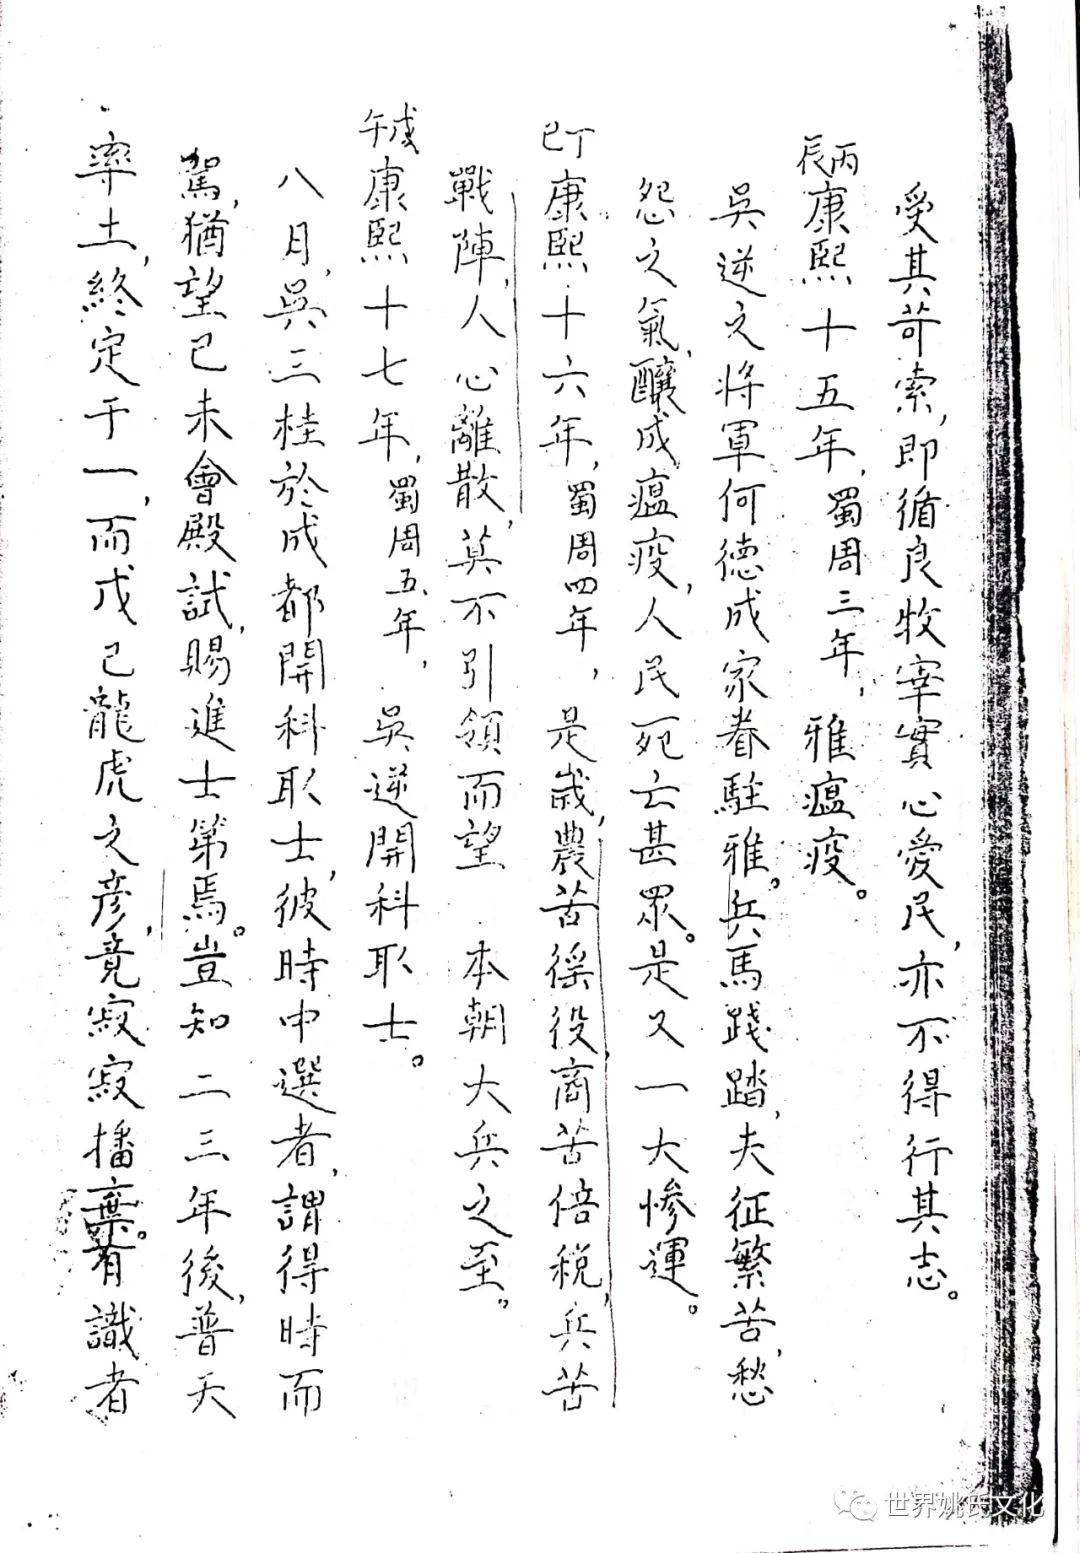 受其苛索，即循良牧宰實心愛民，亦不得行其志。
丙辰康熙十五年，蜀周三年，雅瘟疫。
吳逆之將軍何德成家眷駐雅。兵馬踐踏，夫征繁苦，愁
怨之氣，釀成瘟疫，人民死亡甚眾。是又一大慘運。
丁巳康熙十六年，蜀周四年，是歲，農苦徭役，商苦倍稅，兵苦
戰陣，人心離散，莫不引領而望 本朝大兵之至。
戊午康熙十七年，蜀周五年，吳逆開科取士。
八月，吳三桂於成都開科取士，彼時中選者，謂得時而
駕，猶望己未會殿試，賜進士第焉。豈知二三年後，普天
率土，終定于一，而戊己龍虎之彥，竟寂寂播棄。有識者
世界姚氏文化